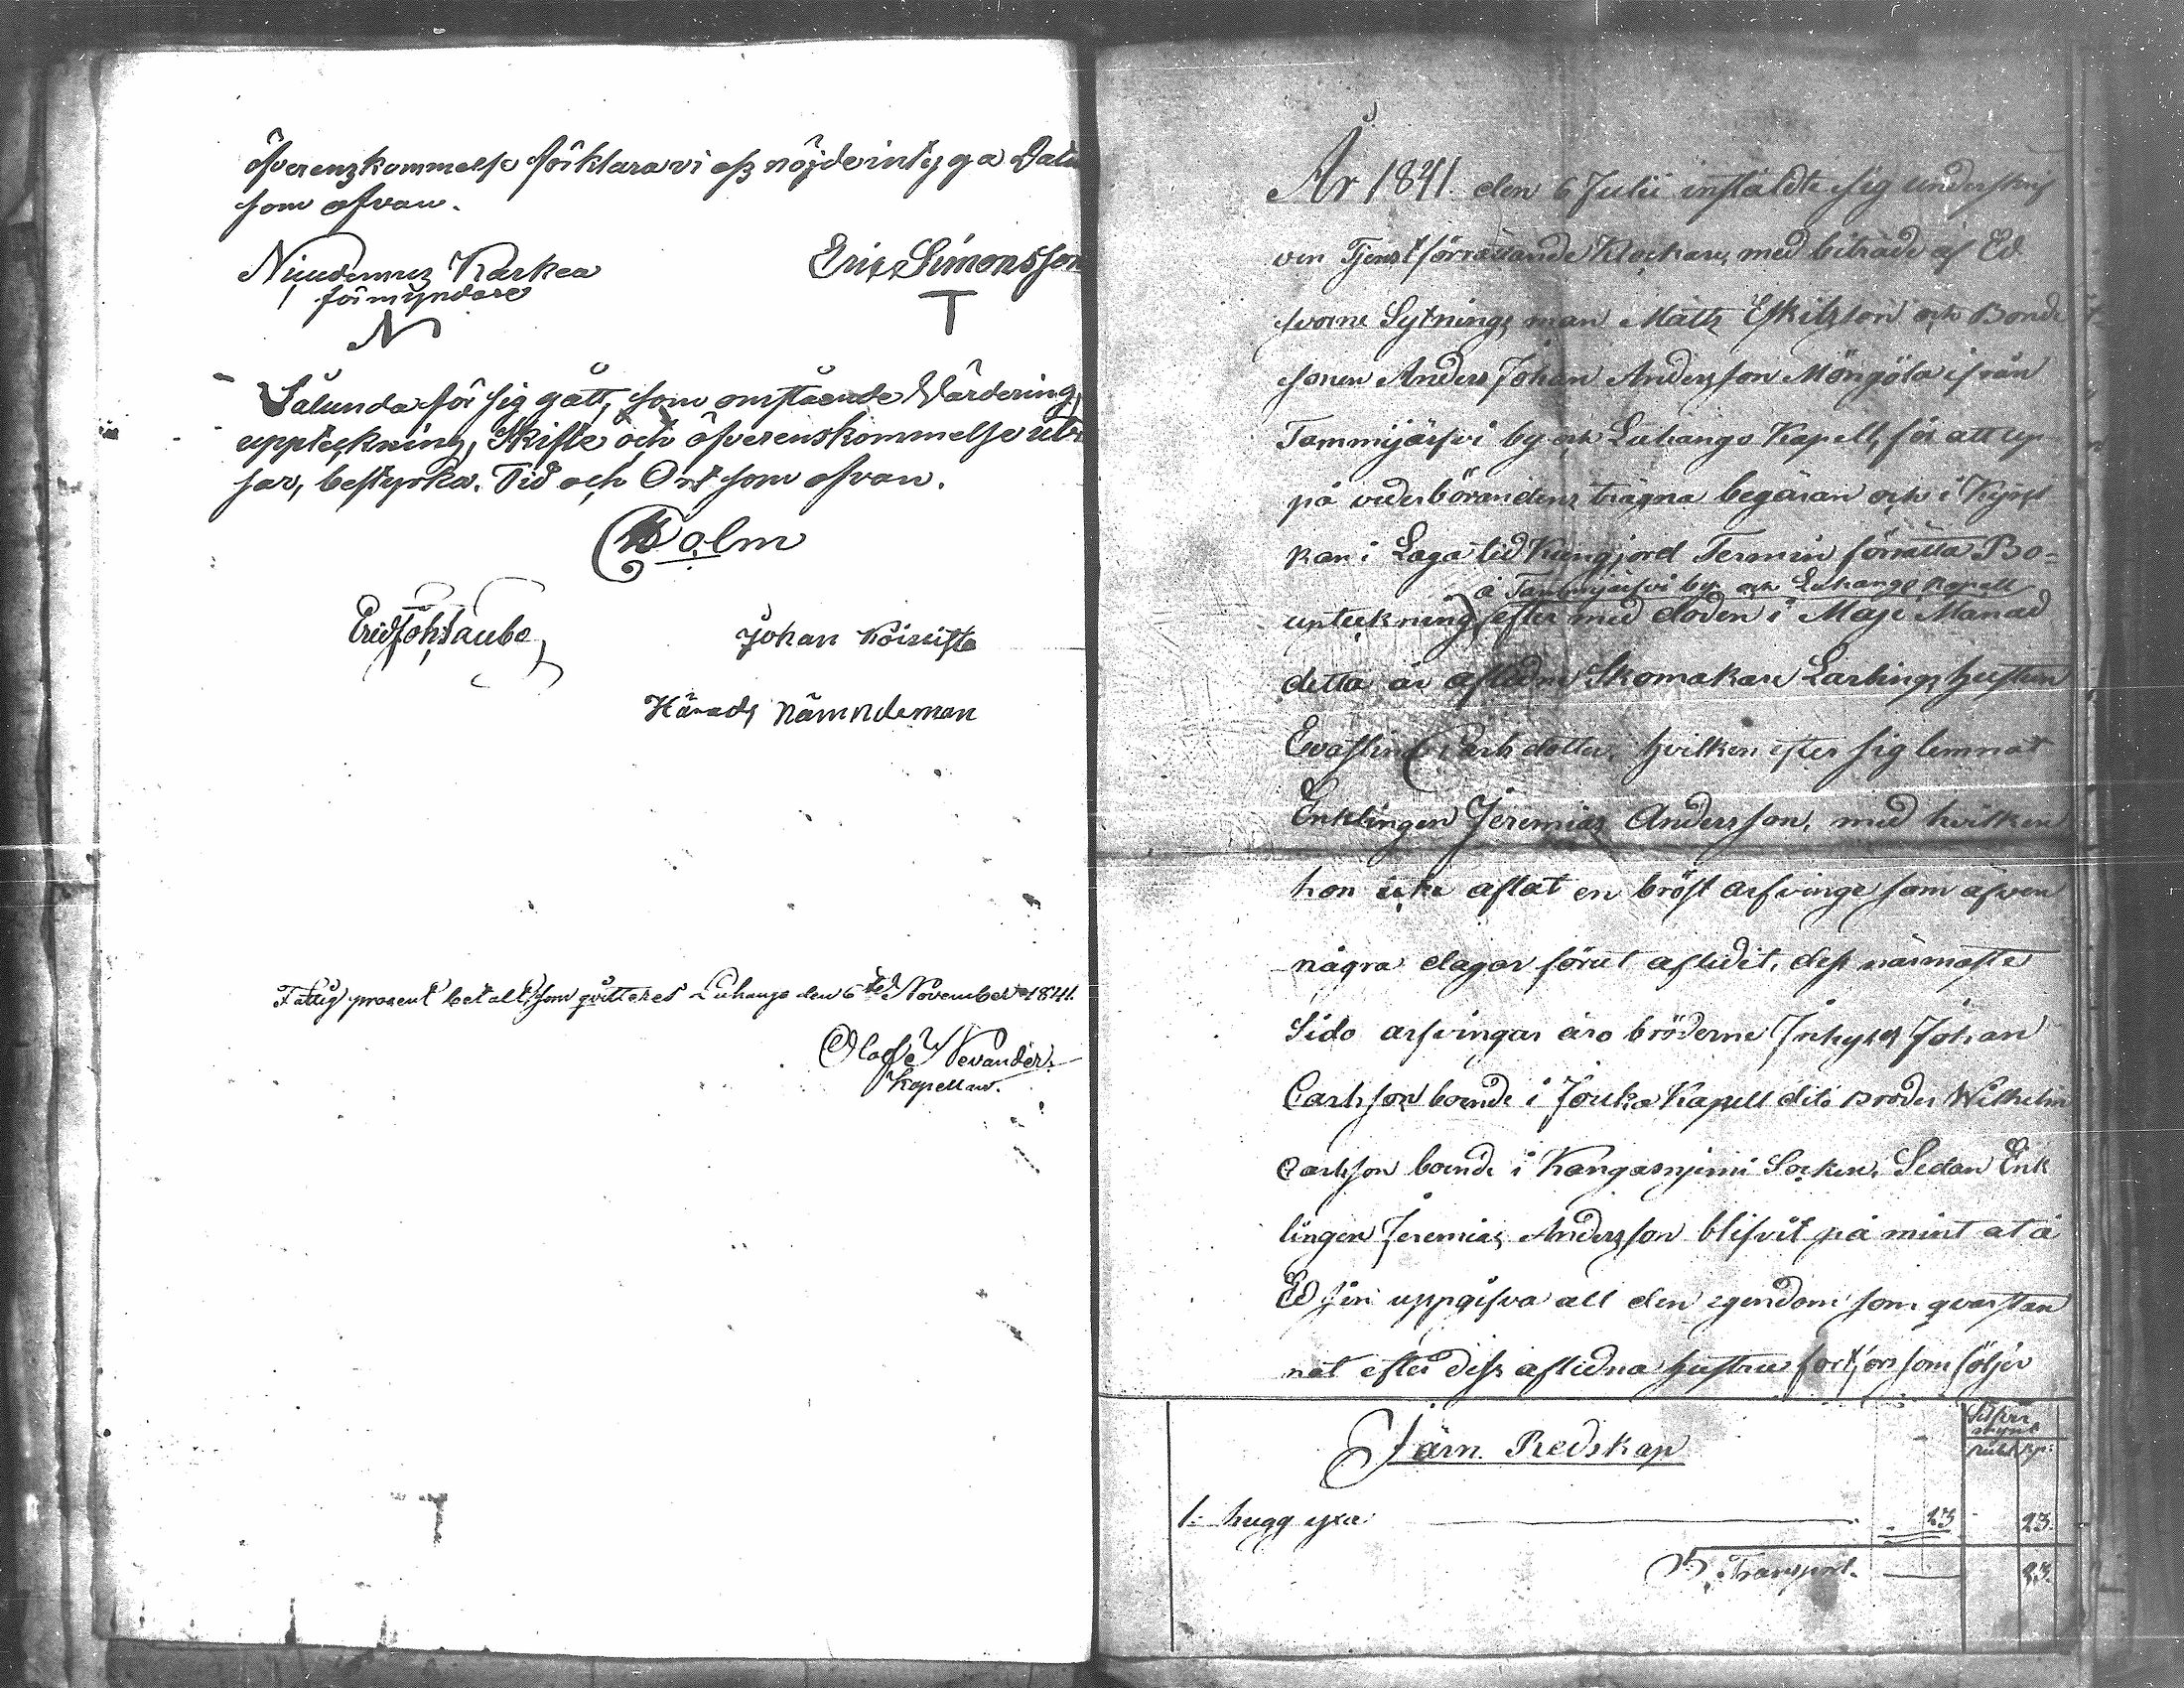 öfverenzkommelse förklara vi oss nöjde intyga Datu
som ofvan.
Karkea
förmyndare
N
Eric Simonsson
T
Sålunda för sig gått, som omstående Värdering,
uppteckning, Skifte och öfverenskommelse utvi
sar, bestyrka. Tid och Ort som ofvan.
Holm
Johan Koivista
Härads nämndeman
Fattig procent betalt, som qvitteres Luhango den 6ted November 1841.
Olof Nevander.
Kapellan.
År 1841. den 6 Julii instälde sig underskrif
ven Tjenstförrättande Klockare, med biträde af Ed
svorne Sytnings man Matts Eskilsson och Bonde
sonen Anders Johan Andersson Möngölä ifrån
Tammijärfvi by och Luhango Kapell, för att up
på vederbörandens trägna begäran och i Kyrk
kan i Laga tid Kungjord Termin förrätta Bo=
å Tammijärfvi by och Luhango Kapell
upteckning, efter med döden i Maji Månad
detta år aflidne Skomakare Lärlings hustrun
Carlsdotter, hvilken efter sig lemnat
Enklingen Jeremias Andersson, med hvilken
hon icke aflat en bröst arfvinge som äfven
några dagar förut aflidit, dess närmaste
Sido arfvingar äro bröderne Inhyses Johan
Carlsson boende i Jouka Kapell dito Broder Wilhelm
Carlsson boende i Kangasnjemi Socken. Sedan Enk
lingen Jeremias Andersson blifvit på mint at å
Ed sin uppgifva all den egendom som qvarstan
nat efter dess aflidna hustru fortfors som följer
Silfver
mynt
Rubl. kp:
Järn. Redskap
1. hugg yxa: 23 23.
Transport. 23.